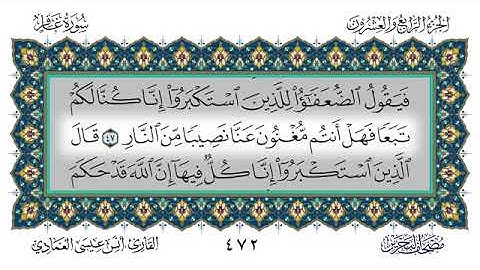 الجزء الرابع والعشرون
سورة غافر
فَيَقُولُ ٱلضُّعَفَـٰٓؤُا۟ لِلَّذِينَ ٱسْتَكْبَرُوٓا۟ إِنَّا كُنَّا لَكُمْ
تَبَعًا فَهَلْ أَنتُم مُّغْنُونَ عَنَّا نَصِيبًا مِّنَ ٱلنَّارِ ٤٧ قَالَ
ٱلَّذِينَ ٱسْتَكْبَرُوٓا۟ إِنَّا كُلٌّ فِيهَآ إِنَّ ٱللَّهَ قَدْ حَكَمَ
٤٧٢
القارئ أنس عيسى العمادي